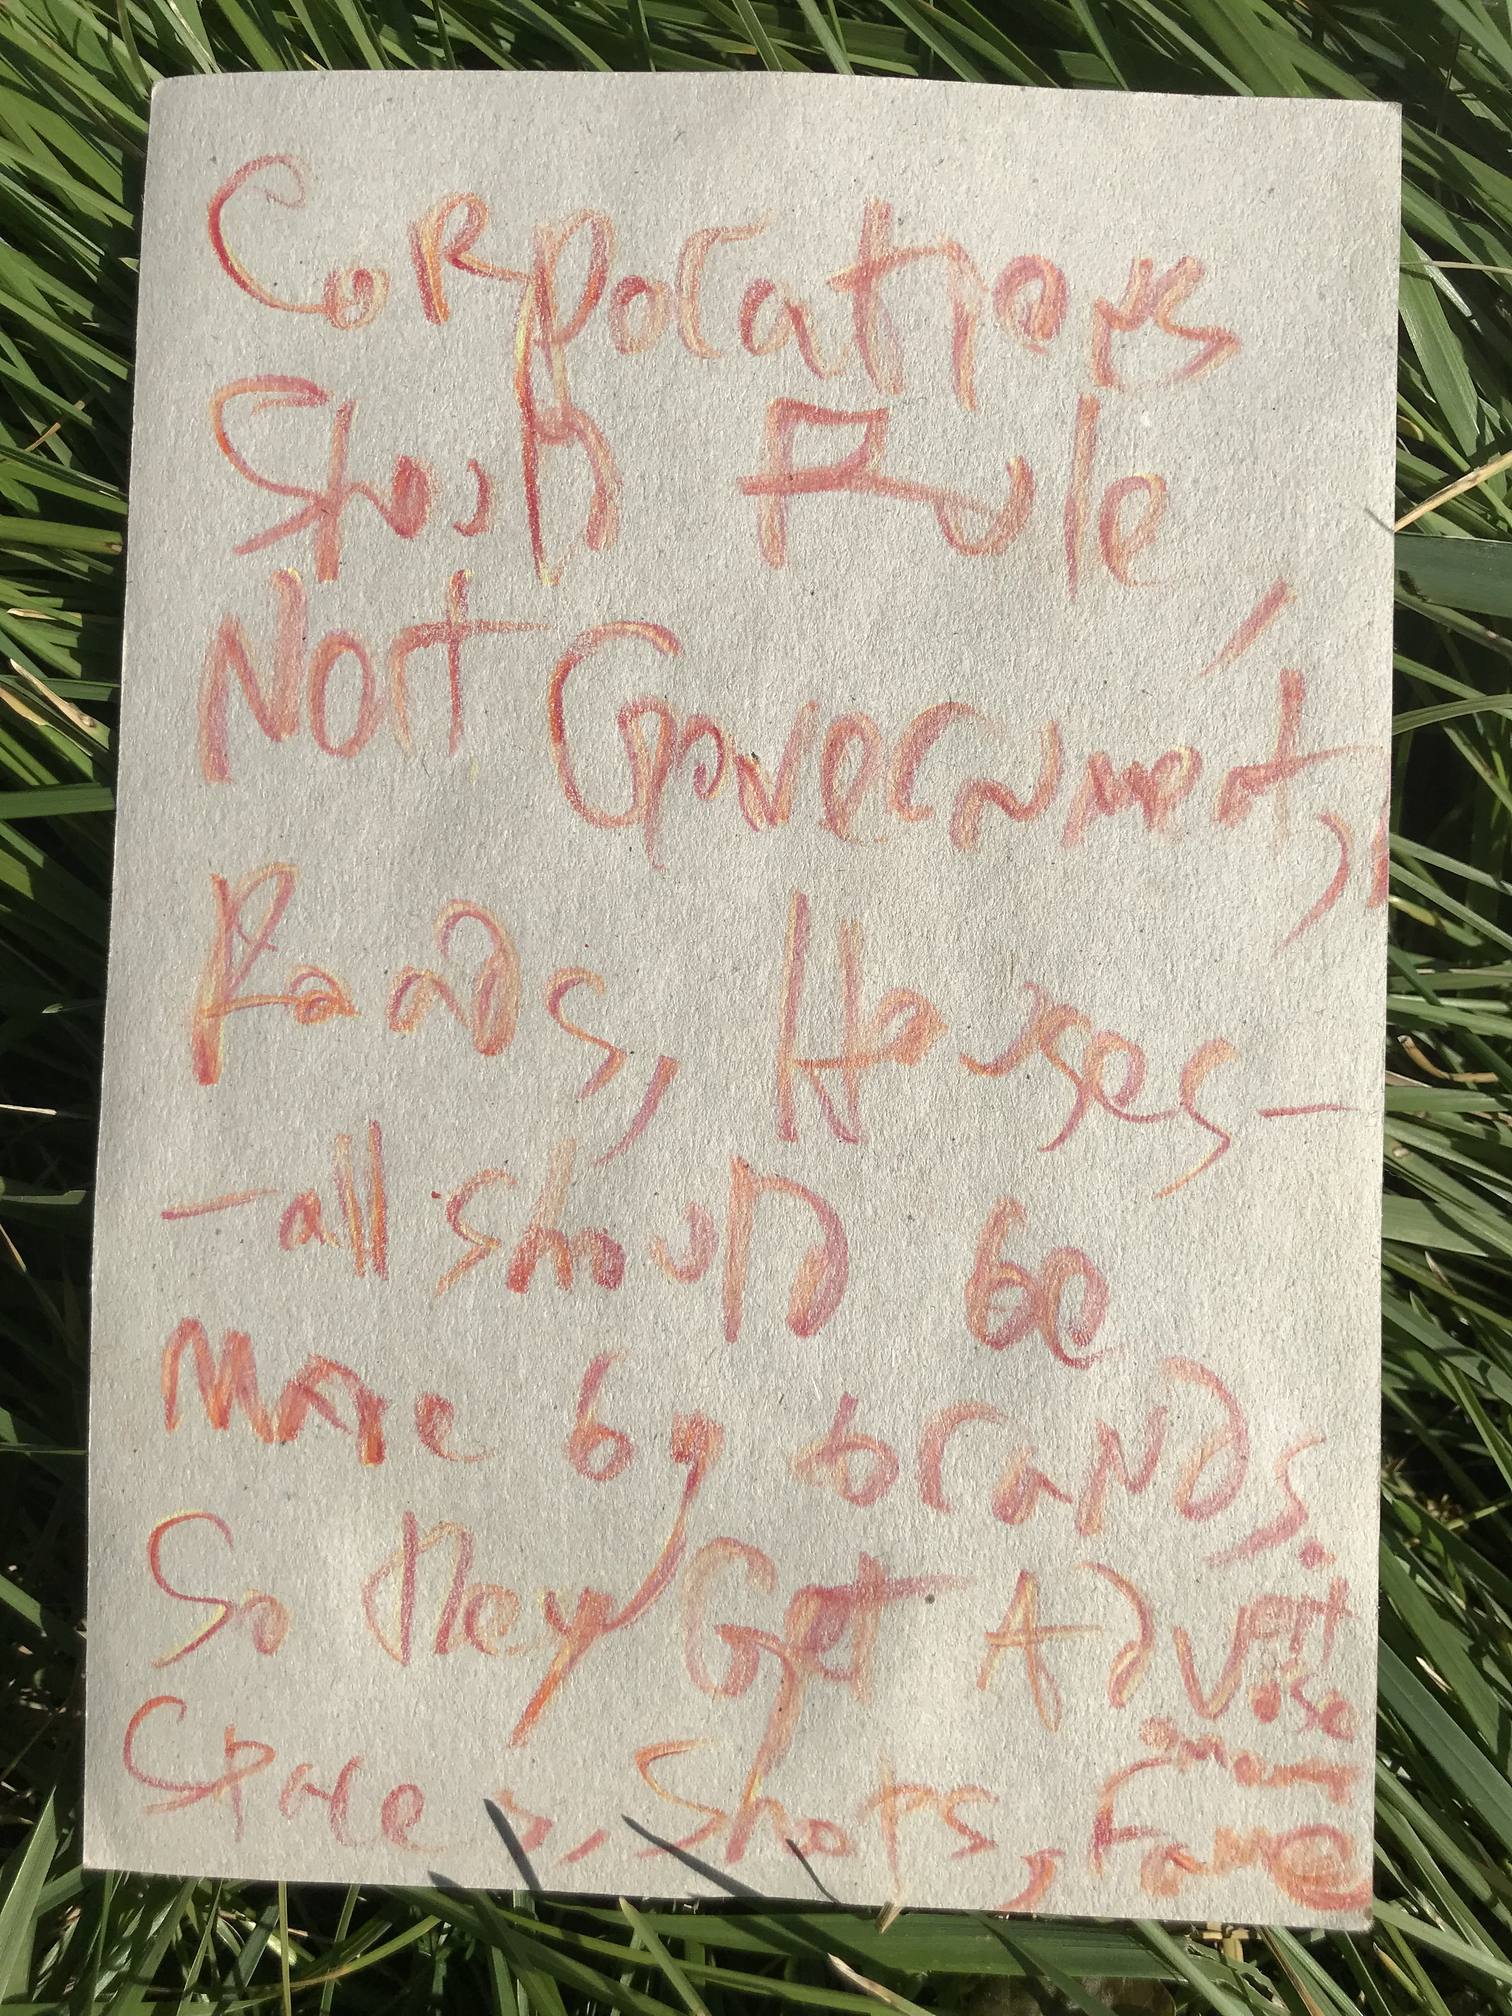 Corporations
Should Rule,
Not Government,
Roads, Houses-
- all should be
Made by brands.
So they Get Advertisement
Spaces, Shots, Fame